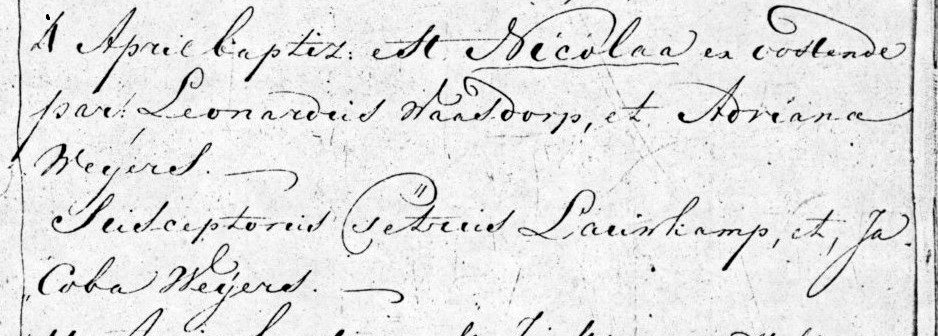 4 April baptiz: est. Nicolaa ex oostende
par: Leonardus Waasdorp, et Adriana
Weÿers.
Susceptorus Petrus Laurkamp, et, Ja
Coba Weÿers.